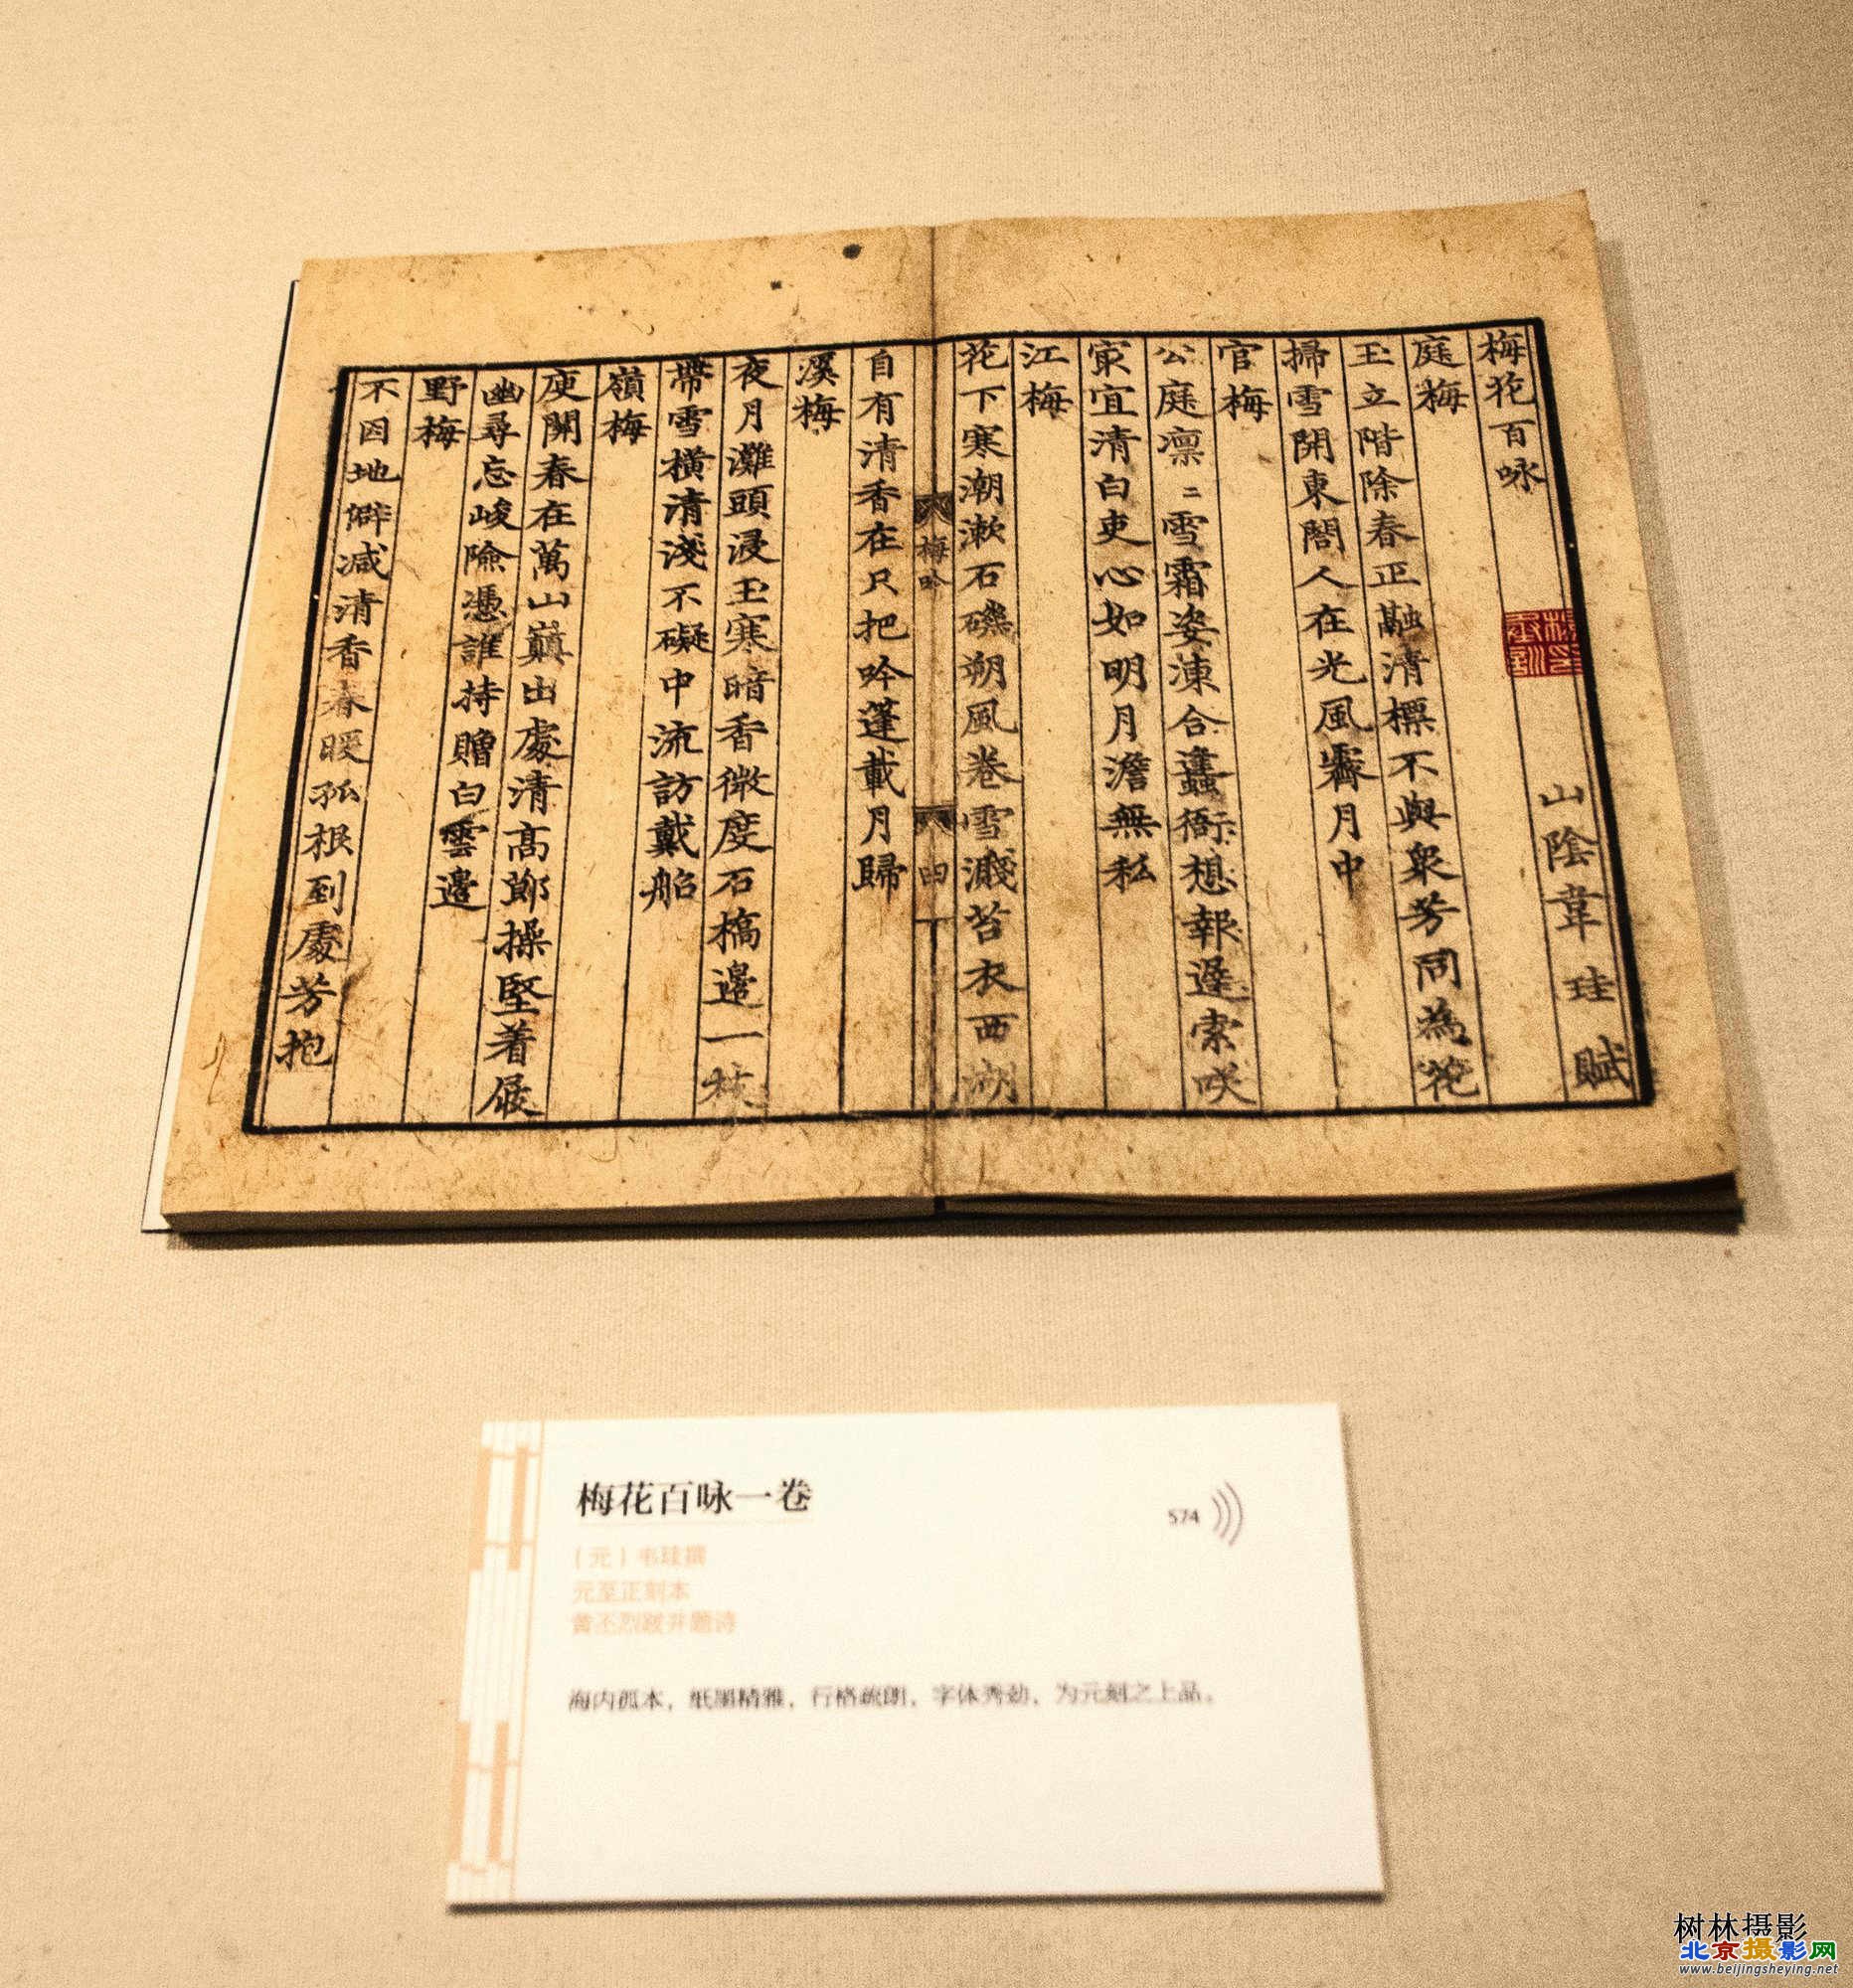 梅花百咏
山陰韋珪賦
庭梅
玉立階除春正融清標不與衆芳同為花
掃雪開東閤人在光風霽月中
官梅
公庭凛〻雪霜姿凍合蠹衙想報遲索咲
宜清白吏心如明月澹無私
江梅
花下寒潮漱石磯朔風卷雪濺苔衣西湖
自有清香在只把吟蓬載月歸
溪梅
夜月灘頭浸玉寒暗香微度石橋邉一枝
帶雪橫清淺不礙中流訪戴船
嶺梅
庾開春在萬山巔出處清高節操堅着屐
幽尋忘峻險憑誰持贈白雲邉
野梅
不因地僻减清香春暖孤根到處芳抱
梅吟
四
梅花百咏一卷
574
（元）韦珪撰
元至正刻本
黄丕烈跋并题诗
海内孤本，纸墨精雅，行格疏朗，字体秀劲，为元刻之上品。
树林摄影
北京摄影网
www.beijingsheying.net